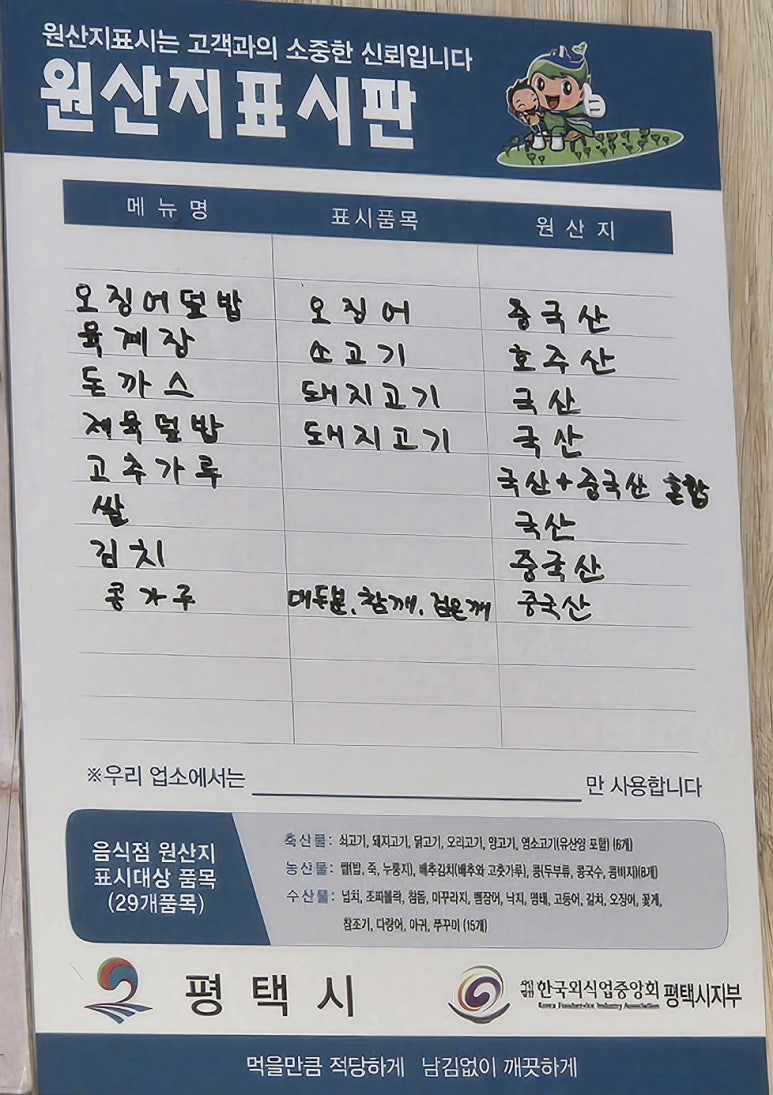 원산지표시는 고객과의 소중한 신뢰입니다
원산지표시판
메뉴명 표시품목 원산지
오징어덮밥 오징어 중국산
육계장 소고기 호주산
돈까스 돼지고기 국산
제육덮밥 돼지고기 국산
고추가루 국산+중국산 혼합
쌀 국산
김치 중국산
콩가루 대두분, 참깨, 검은깨 중국산
※우리 업소에서는 만 사용합니다
음식점 원산지
표시대상 품목
(29개품목)
축산물: 쇠고기, 돼지고기, 닭고기, 오리고기, 양고기, 염소고기(유산양 포함) (6개)
농산물: 쌀(밥, 죽, 누룽지), 배추김치(배추와 고춧가루), 콩(두부류, 콩국수, 콩비지)(8개)
수산물: 넙치, 조피볼락, 참돔, 미꾸라지, 뱀장어, 낙지, 명태, 고등어, 갈치, 오징어, 꽃게,
참조기, 다랑어, 아귀, 쭈꾸미 (15개)
평택시
한국외식업중앙회 평택시지부
Korea Foodservice Industry Association
먹을만큼 적당하게 남김없이 깨끗하게